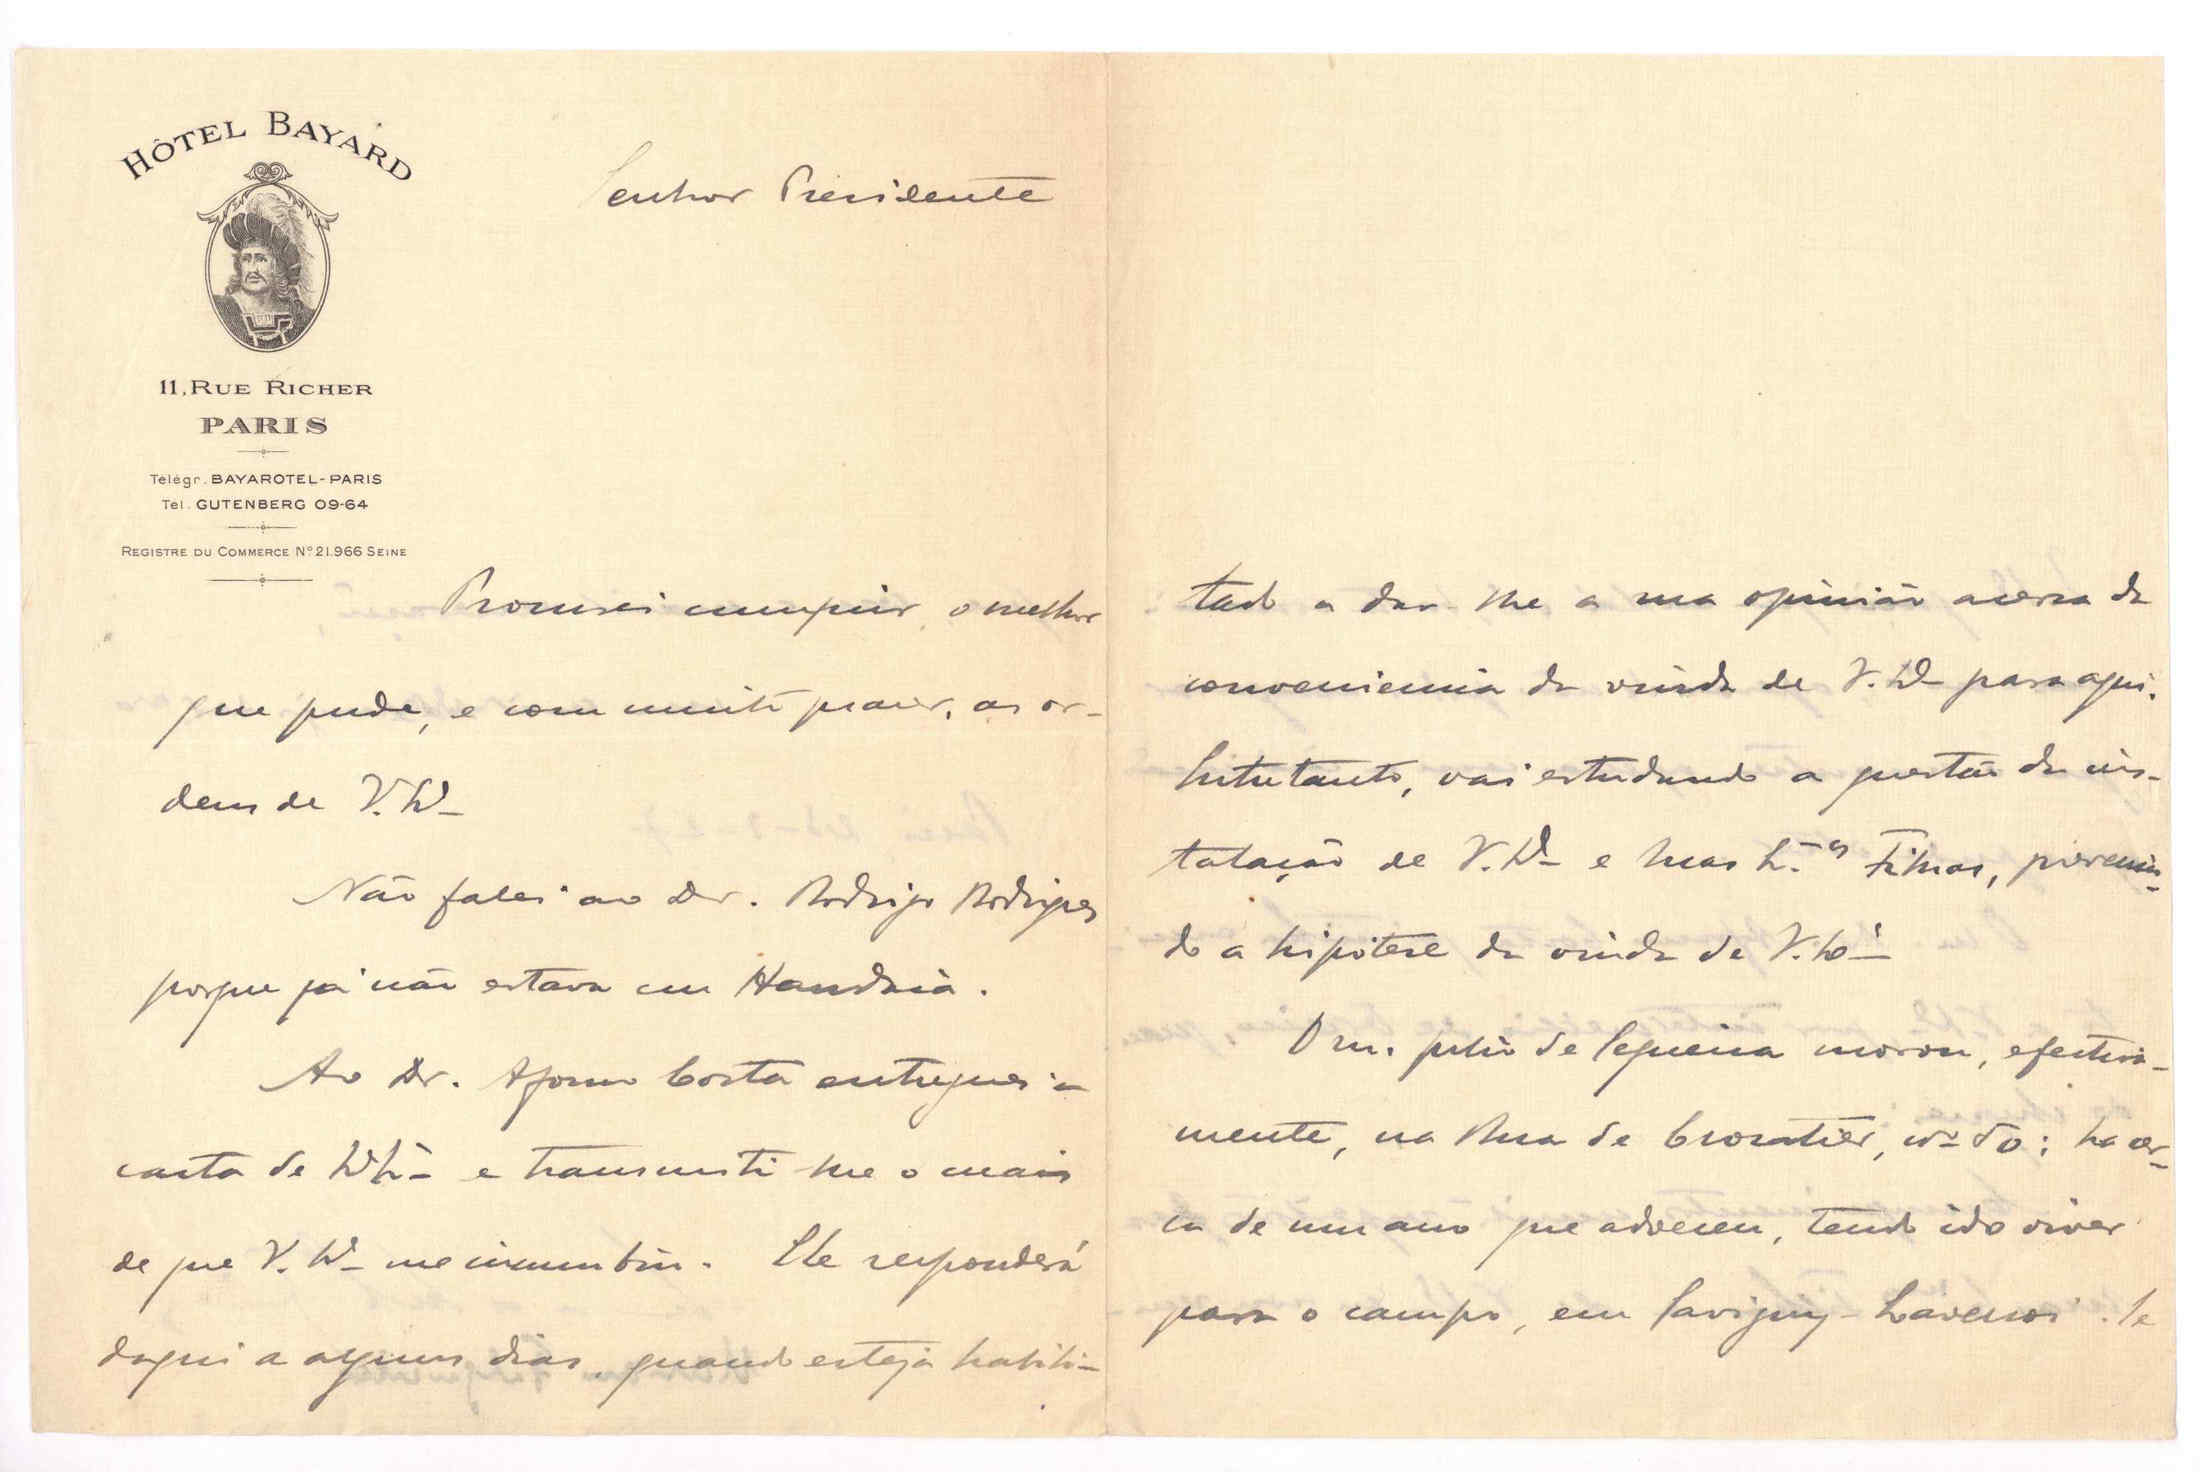 HÔTEL BAYARD
11, RUE RICHER
PARIS
Télégr. BAYAROTEL-PARIS
Tel. GUTENBERG 09-64
REGISTRE DU COMMERCE Nº 21.966 SEINE
Senhor Presidente
Procurei cumprir, o melhor
que pude, e com muito prazer, as or-
dens de V. Ex.ª
Não falei ao Dr. Rodrigo Rodrigues
porque já não estava em Handaia.
Ao Dr. Afonso Costa entreguei a
carta de V. Ex.ª e transmiti-lhe o mais
de que V. Ex.ª me incumbiu. Ele responderá
daqui a alguns dias, quando esteja habili-
tado a dar-lhe a sua opinião acerca da
conveniencia da vinda de V. Ex.ª para aqui.
Entretanto, vai estudando a questão da ins-
talação de V. Ex.ª e Suas Ex.ªs Filhas, prevenin-
do a hipótese da vinda de V. Ex.ª
O sr. Julio de Sequeira morou, efectiva-
mente, na Rua de nº 50; ha cer-
ca de um ano que adoeceu, tendo ido viver
para o campo, em Savigny- Se